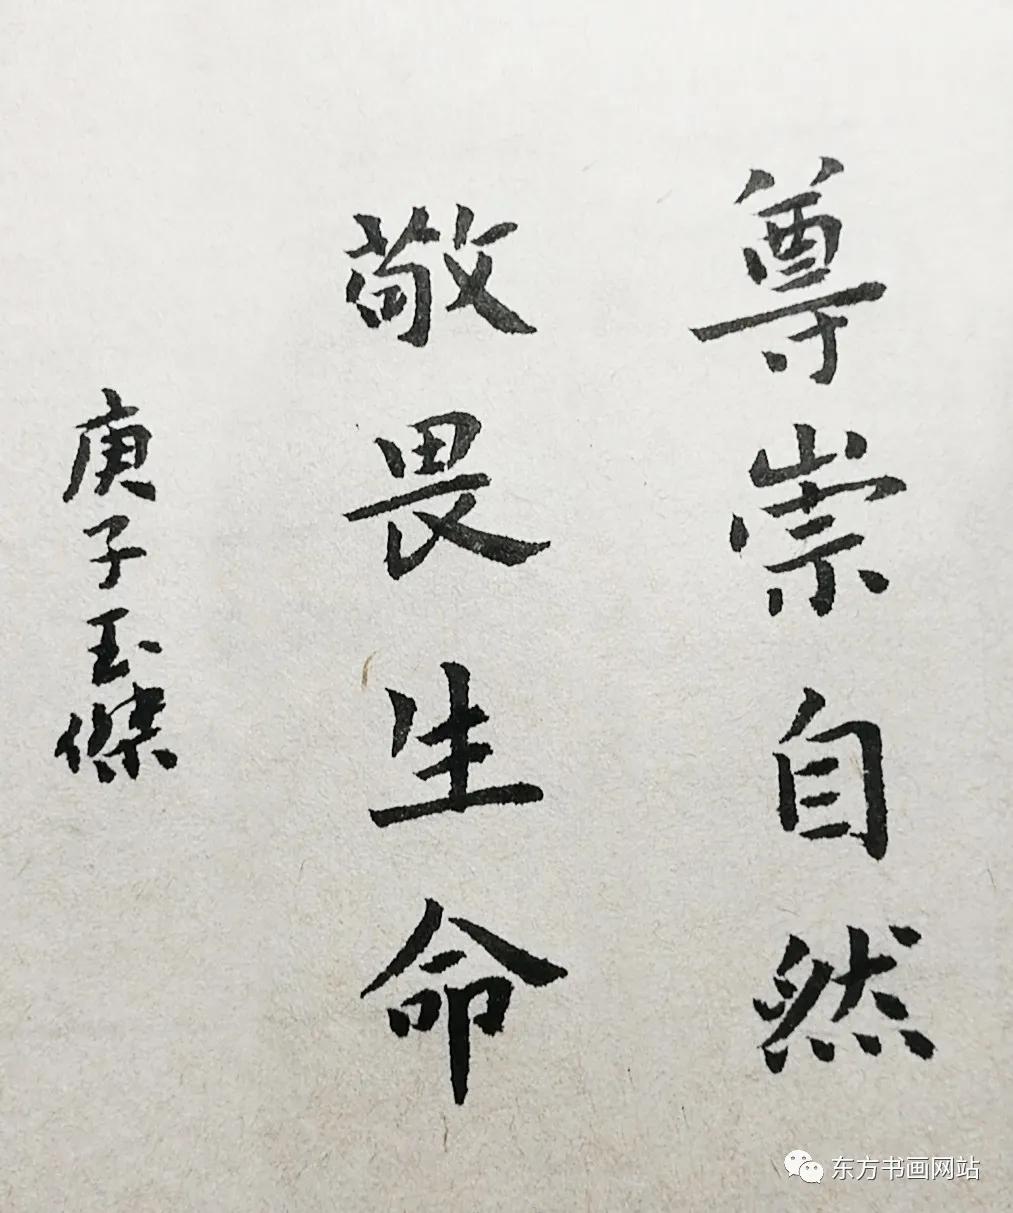 尊崇自然
敬畏生命
庚子玉傑
东方书画网站